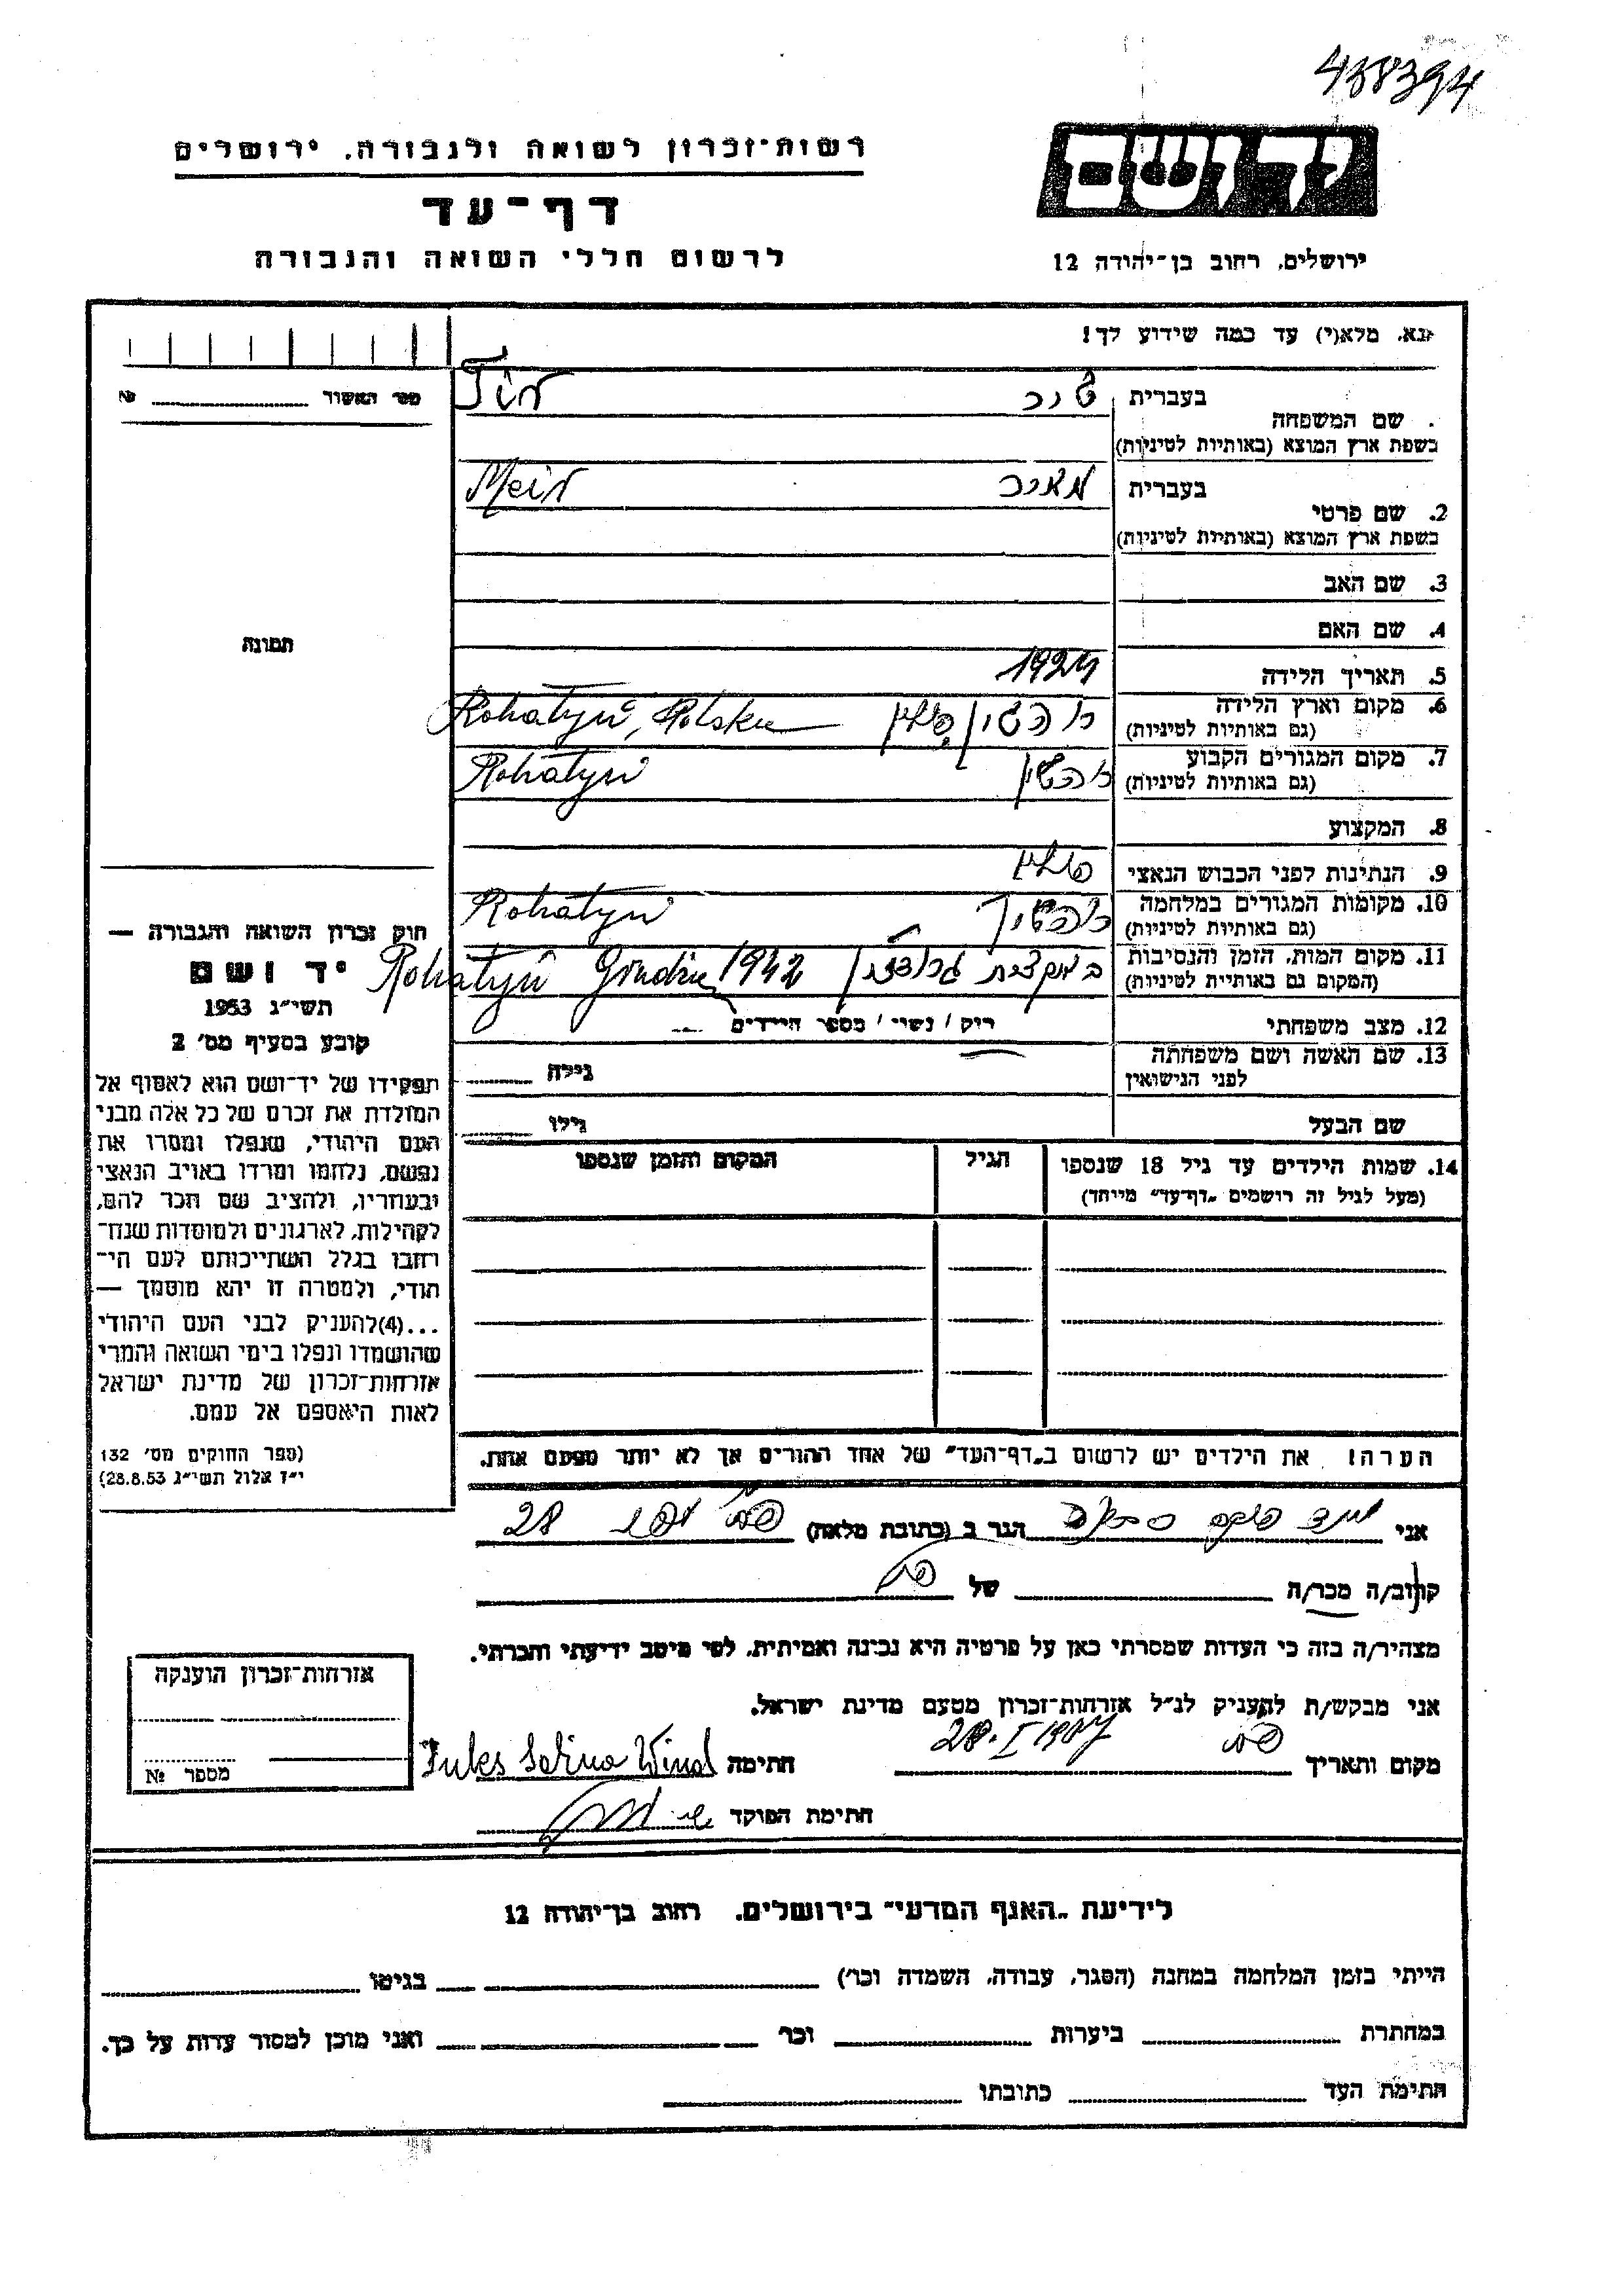 458394
רשות-זכרון לשואה ולגבורה, ירושלים
דף-עד
לרשום חללי השואה והגבורה
יד ושם
ירושלים, רחוב בן-יהודה 12
נא, מלא(י) עד כמה שידוע לך!
מס׳ האשור № 
שם המשפחה
בעברית טיר Tir
בשפת ארץ המוצא (באותיות לטיניות)
2. שם פרטי
בעברית מאיר Meir
בשפת ארץ המוצא (באותיות לטיניות)
3. שם האב
4. שם האם
5. תאריך הלידה 1924
6. מקום וארץ הלידה
(גם באותיות לטיניות) רוהטין פולין Rohatyn, Polska
7. מקום המגורים הקבוע
(גם באותיות לטיניות) רוהטין Rohatyn
8. המקצוע
9. הנתינות לפני הכבוש הנאצי פולין
10. מקומות המגורים במלחמה
(גם באותיות לטיניות) רוהטין Rohatyn
11. מקום המות, הזמן והנסיבות
(המקום גם באותיות לטיניות) Rohatyn 1942
12. מצב משפחתי רוק / נשוי / מספר הילדים
13. שם האשה ושם משפחתה
לפני הנישואין גילה
שם הבעל גילו
14. שמות הילדים עד גיל 18 שנספו
(מעל לגיל זה רושמים „דף-עד״ מיוחד)
הגיל
המקום והזמן שנספו
הערה! את הילדים יש לרשום ב„דף-העד״ של אחד ההורים אך לא יותר מפעם אחת.
תמונה
חוק זכרון השואה והגבורה —
יד ושם
תשי״ג 1953
קובע בסעיף מס׳ 2
תפקידו של יד-ושם הוא לאסוף אל
המולדת את זכרם של כל אלה מבני
העם היהודי, שנפלו ומסרו את
נפשם, נלחמו ומרדו באויב הנאצי
ובעוזריו, ולהציב שם וזכר להם,
לקהילות, לארגונים ולמוסדות שנח-
רבו בגלל השתייכותם לעם הי-
הודי, ולמטרה זו יהא מוסמך —
...(4) להעניק לבני העם היהודי
שהושמדו ונפלו בימי השואה והמרי
אזרחות-זכרון של מדינת ישראל
לאות היאספם אל עמם.
(ספר החוקים מס׳ 132
י״ז אלול תשי״ג 28.8.53)
אני הגר ב (כתובת מלאה) 28
קרוב/ה מכר/ה של
מצהיר/ה בזה כי העדות שמסרתי כאן על פרטיה היא נכונה ואמיתית, לפי מיטב ידיעתי והכרתי.
אני מבקש/ת להעניק לנ״ל אזרחות-זכרון מטעם מדינת ישראל.
מקום ותאריך חתימה Wind
חתימת הפוקד
אזרחות-זכרון הוענקה
מספר №
לידיעת „האגף המדעי״ בירושלים, רחוב בן-יהודה 12
הייתי בזמן המלחמה במחנה (הסגר, עבודה, השמדה וכו׳) בגיטו
במחתרת ביערות וכו׳ ואני מוכן למסור עדות על כך.
חתימת העד כתובתו